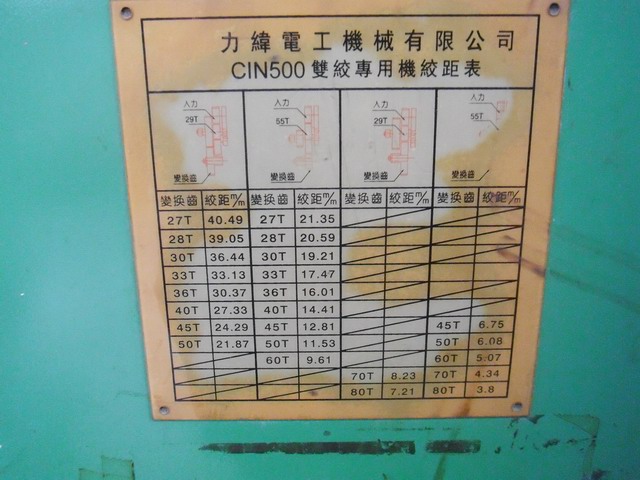 力緯電工機械有限公司
CIN500 雙絞專用機絞距表
入力 入力 入力 入力
29T 55T 29T 55T
變換齒 變換齒 變換齒 變換齒
變換齒 絞距m/m 變換齒 絞距m/m 變換齒 絞距m/m 變換齒 絞距m/m
27T 40.49 27T 21.35
28T 39.05 28T 20.59
30T 36.44 30T 19.21
33T 33.13 33T 17.47
36T 30.37 36T 16.01
40T 27.33 40T 14.41
45T 24.29 45T 12.81 45T 6.75
50T 21.87 50T 11.53 50T 6.08
60T 9.61 60T 5.07
70T 8.23 70T 4.34
80T 7.21 80T 3.8